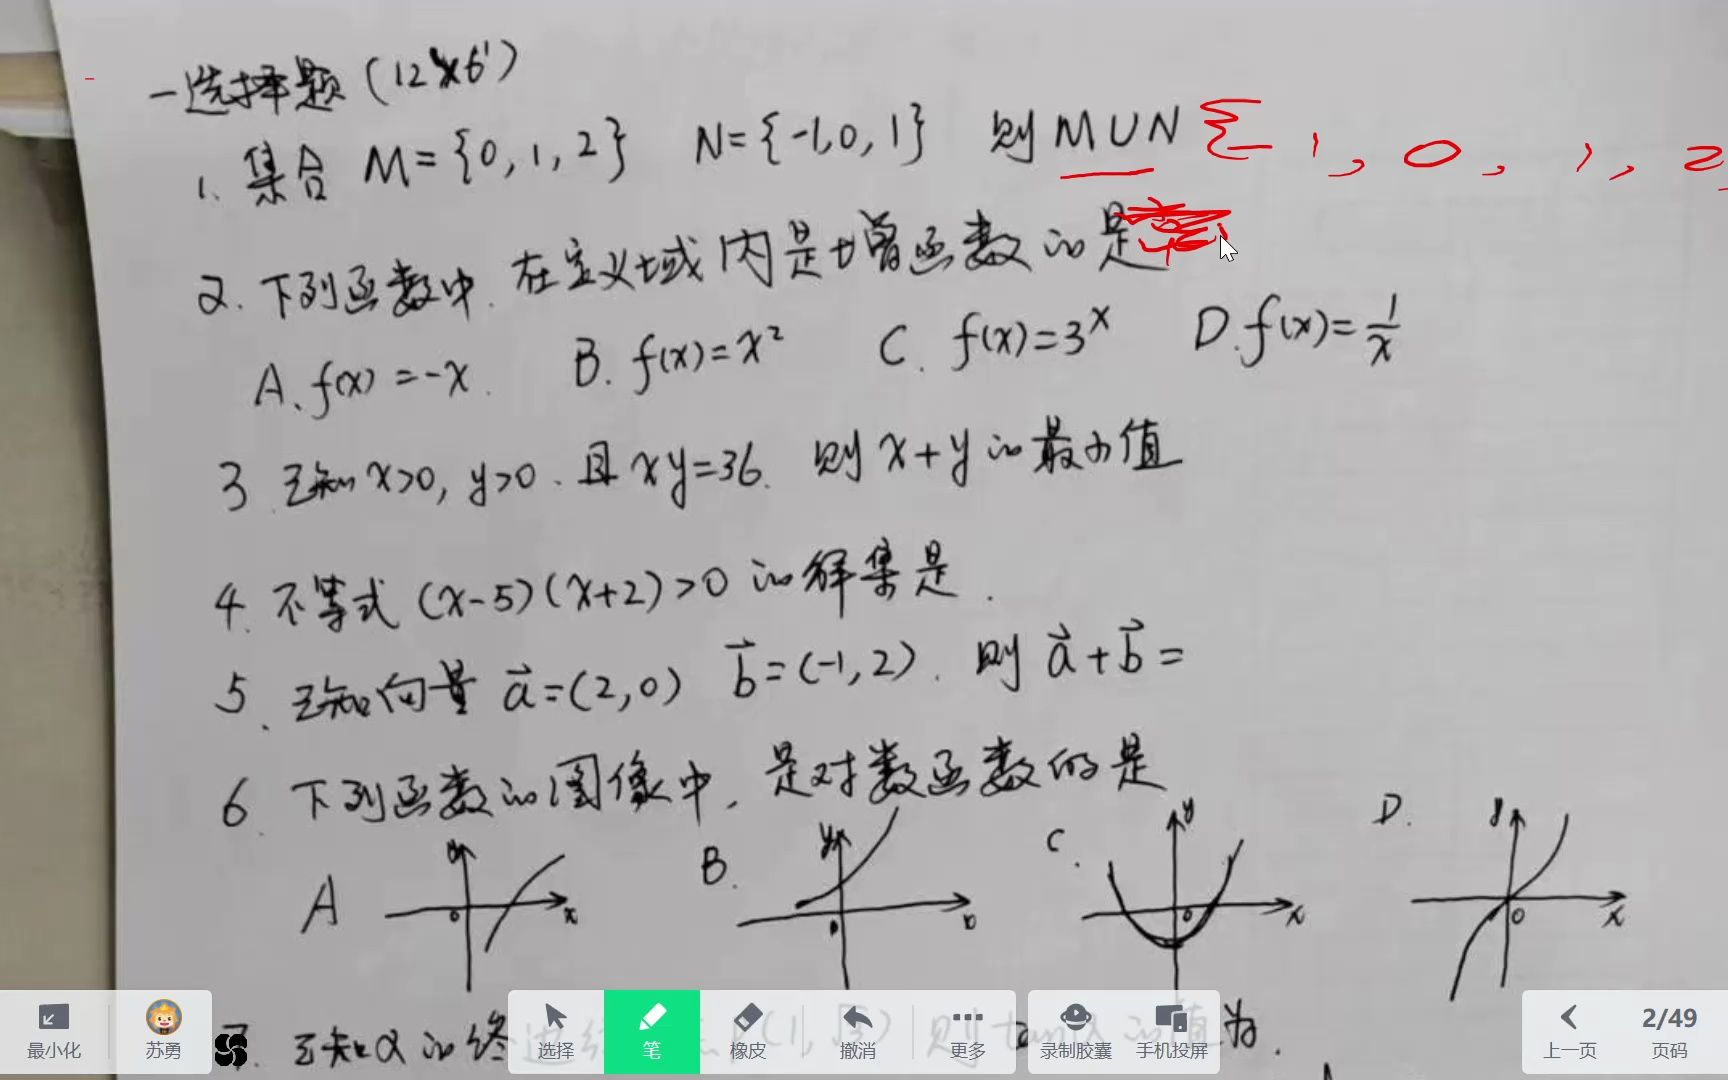 一选择题(12×6')
1. 集合 M={0,1,2} N={-1,0,1} 则 M∪N {-1, 0, 1, 2
2. 下列函数中.在定义域内是增函数的是
A. f(x)=-x. B. f(x)=x² C. f(x)=3ˣ D. f(x)=1/x
3 已知 x>0, y>0. 且 xy=36. 则 x+y 的最小值
4. 不等式 (x-5)(x+2)>0 的解集是.
5. 已知向量 a⃗=(2,0) b⃗=(-1,2). 则 a⃗+b⃗=
6. 下列函数的图像中, 是对数函数的是
A B. C. D.
y 0 x y 0 y 0 x y 0 x
7. 已知α的终 (1, 则 tanα的值为.
最小化 苏勇 选择 笔 橡皮 撤消 更多 录制胶囊 手机投屏 上一页 2/49 页码